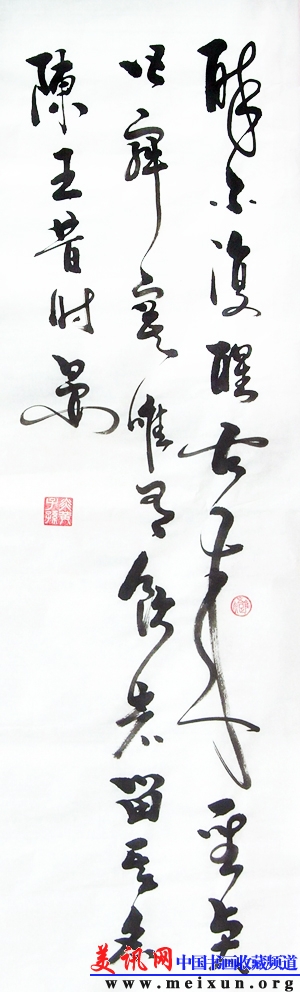 醉不復醒古来聖賢
皆寂寞惟有飲者留其名
陳王昔时宴
炎黄子孫
美讯网 中国书画收藏频道
www.meixun.org